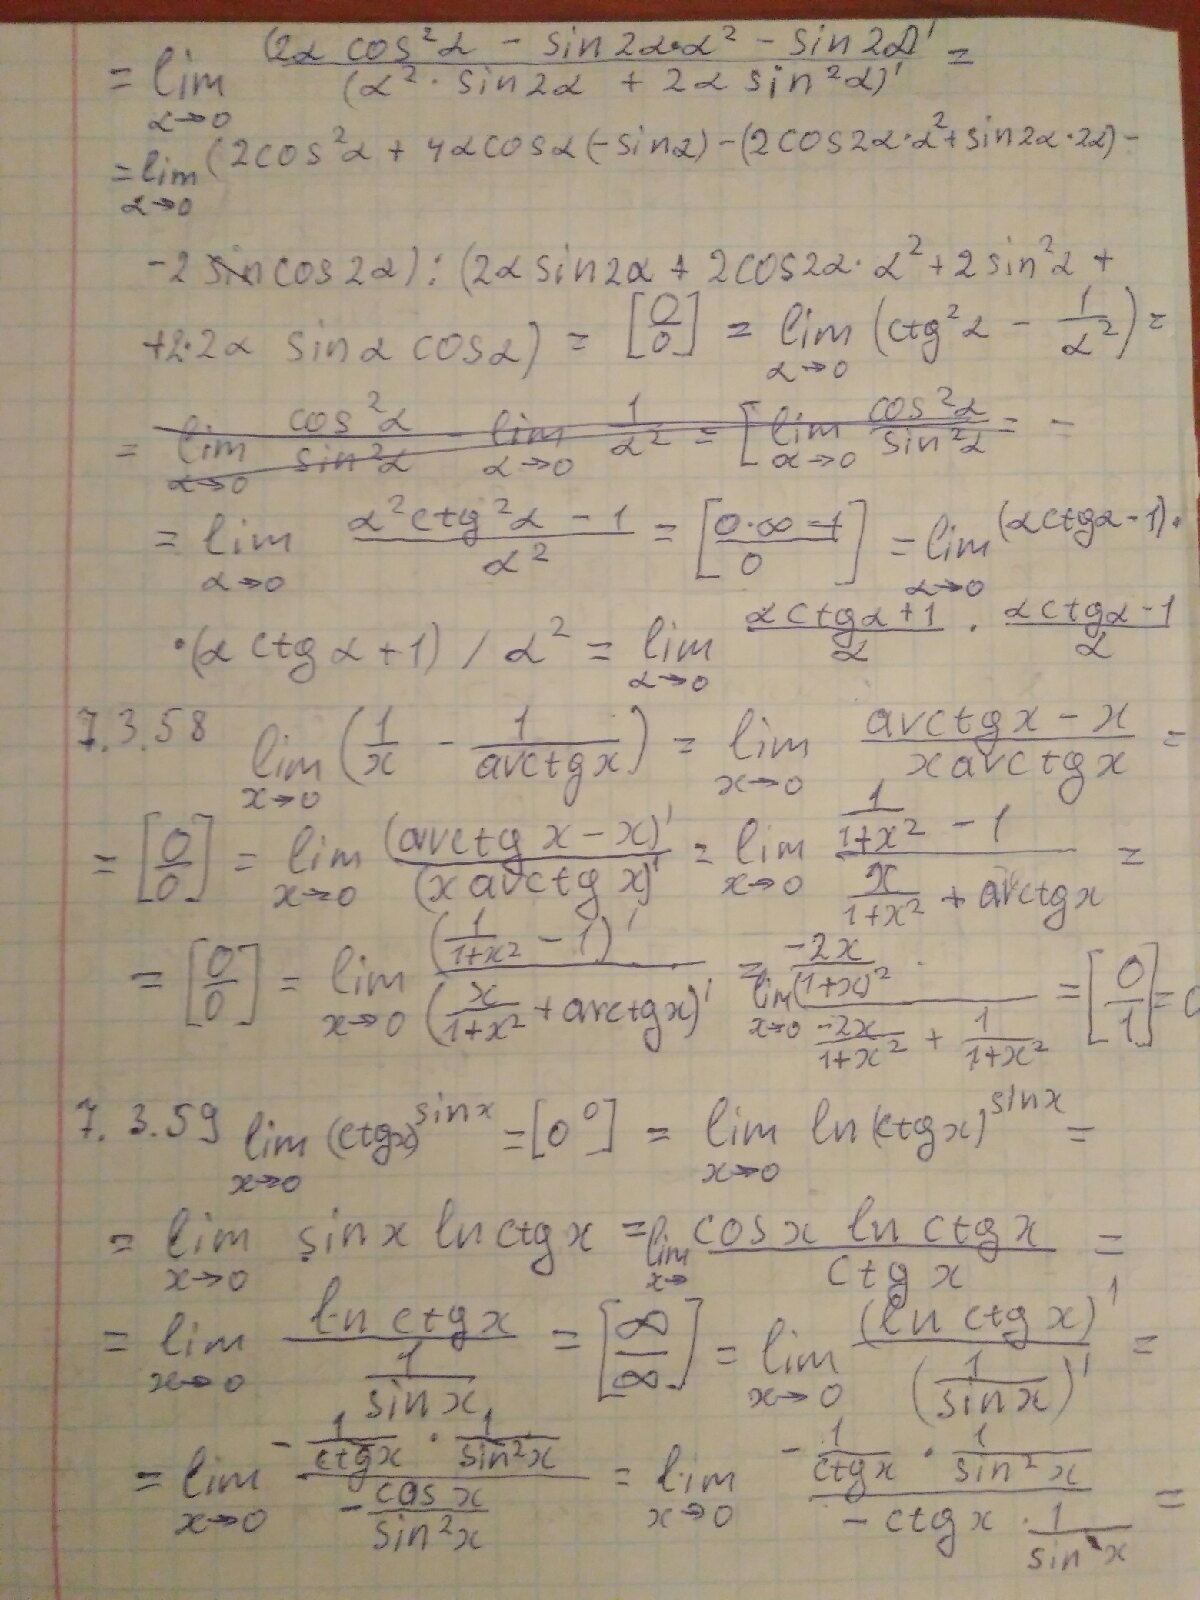 = lim α→0 (2α cos²α − sin2α·α² − sin2α)' / (α²·sin2α + 2α sin²α)' =
= lim α→0 (2cos²α + 4αcosα(−sinα) − (2cos2α·α² + sin2α·2α) −
−2 cos2α) : (2α sin2α + 2cos2α·α² + 2sin²α +
+2·2α sinα cosα) = [0/0] = lim α→0 (ctg²α − 1/α²) =
= lim α→0 cos²α/sin²α − lim α→0 1/α² = [lim α→0 cos²α/sin²α = =
= lim α→0 (α²ctg²α − 1)/α² = [(0·∞ − 1)/0] = lim α→0 (αctgα − 1)·
·(α ctgα + 1) / α² = lim α→0 (α ctgα + 1)/α · (α ctgα − 1)/α
7.3.58 lim x→0 (1/x − 1/arctgx) = lim x→0 (arctgx − x)/(x arctgx) =
= [0/0] = lim x→0 (arctg x − x)'/(x arctg x)' = lim x→0 (1/(1+x²) − 1)/(x/(1+x²) + arctgx) =
= [0/0] = lim x→0 (1/(1+x²) − 1)'/(x/(1+x²) + arctgx)' = lim x→0 (−2x/(1+x)²)/(−2x/(1+x²) + 1/(1+x²)) = [0/1] = 0
7.3.59 lim x→0 (ctgx)^sinx = [0⁰] = lim x→0 ln(ctgx)^sinx =
= lim x→0 sinx ln ctgx = lim x→ (cosx ln ctgx)/(ctgx) =
= lim x→0 (ln ctgx)/(1/sinx) = [∞/∞] = lim x→0 (ln ctgx)'/(1/sinx)' =
= lim x→0 (−1/ctgx · 1/sin²x)/(−cosx/sin²x) = lim x→0 (−1/ctgx · 1/sin²x)/(−ctgx · 1/sin x) =